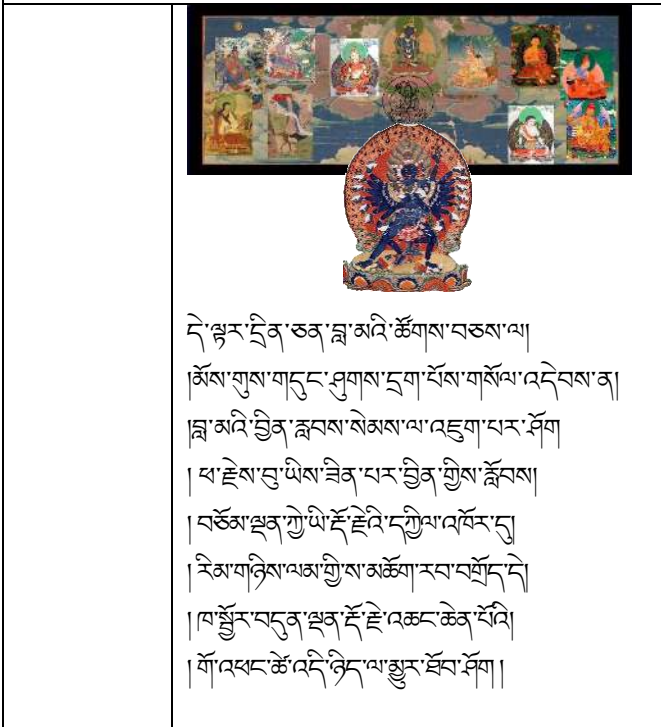 དེ་ལྟར་དྲིན་ཅན་བླ་མའི་ཚོགས་བཅས་ལ།
།མོས་གུས་གདུང་ཤུགས་དྲག་པོས་གསོལ་འདེབས་ན།
།བླ་མའི་བྱིན་རླབས་སེམས་ལ་འཇུག་པར་ཤོག
། ཕ་རྗེས་བུ་ཡིས་ཟིན་པར་བྱིན་གྱིས་རློབས།
། བཅོམ་ལྡན་ཀྱེ་ཡི་རྡོ་རྗེའི་དཀྱིལ་འཁོར་དུ།
། རིམ་གཉིས་ལམ་གྱི་ས་མཆོག་རབ་བགྲོད་དེ།
། ཁ་སྦྱོར་བདུན་ལྡན་རྡོ་རྗེ་འཆང་ཆེན་པོའི།
། གོ་འཕང་ཚེ་འདི་ཉིད་ལ་མྱུར་ཐོབ་ཤོག །